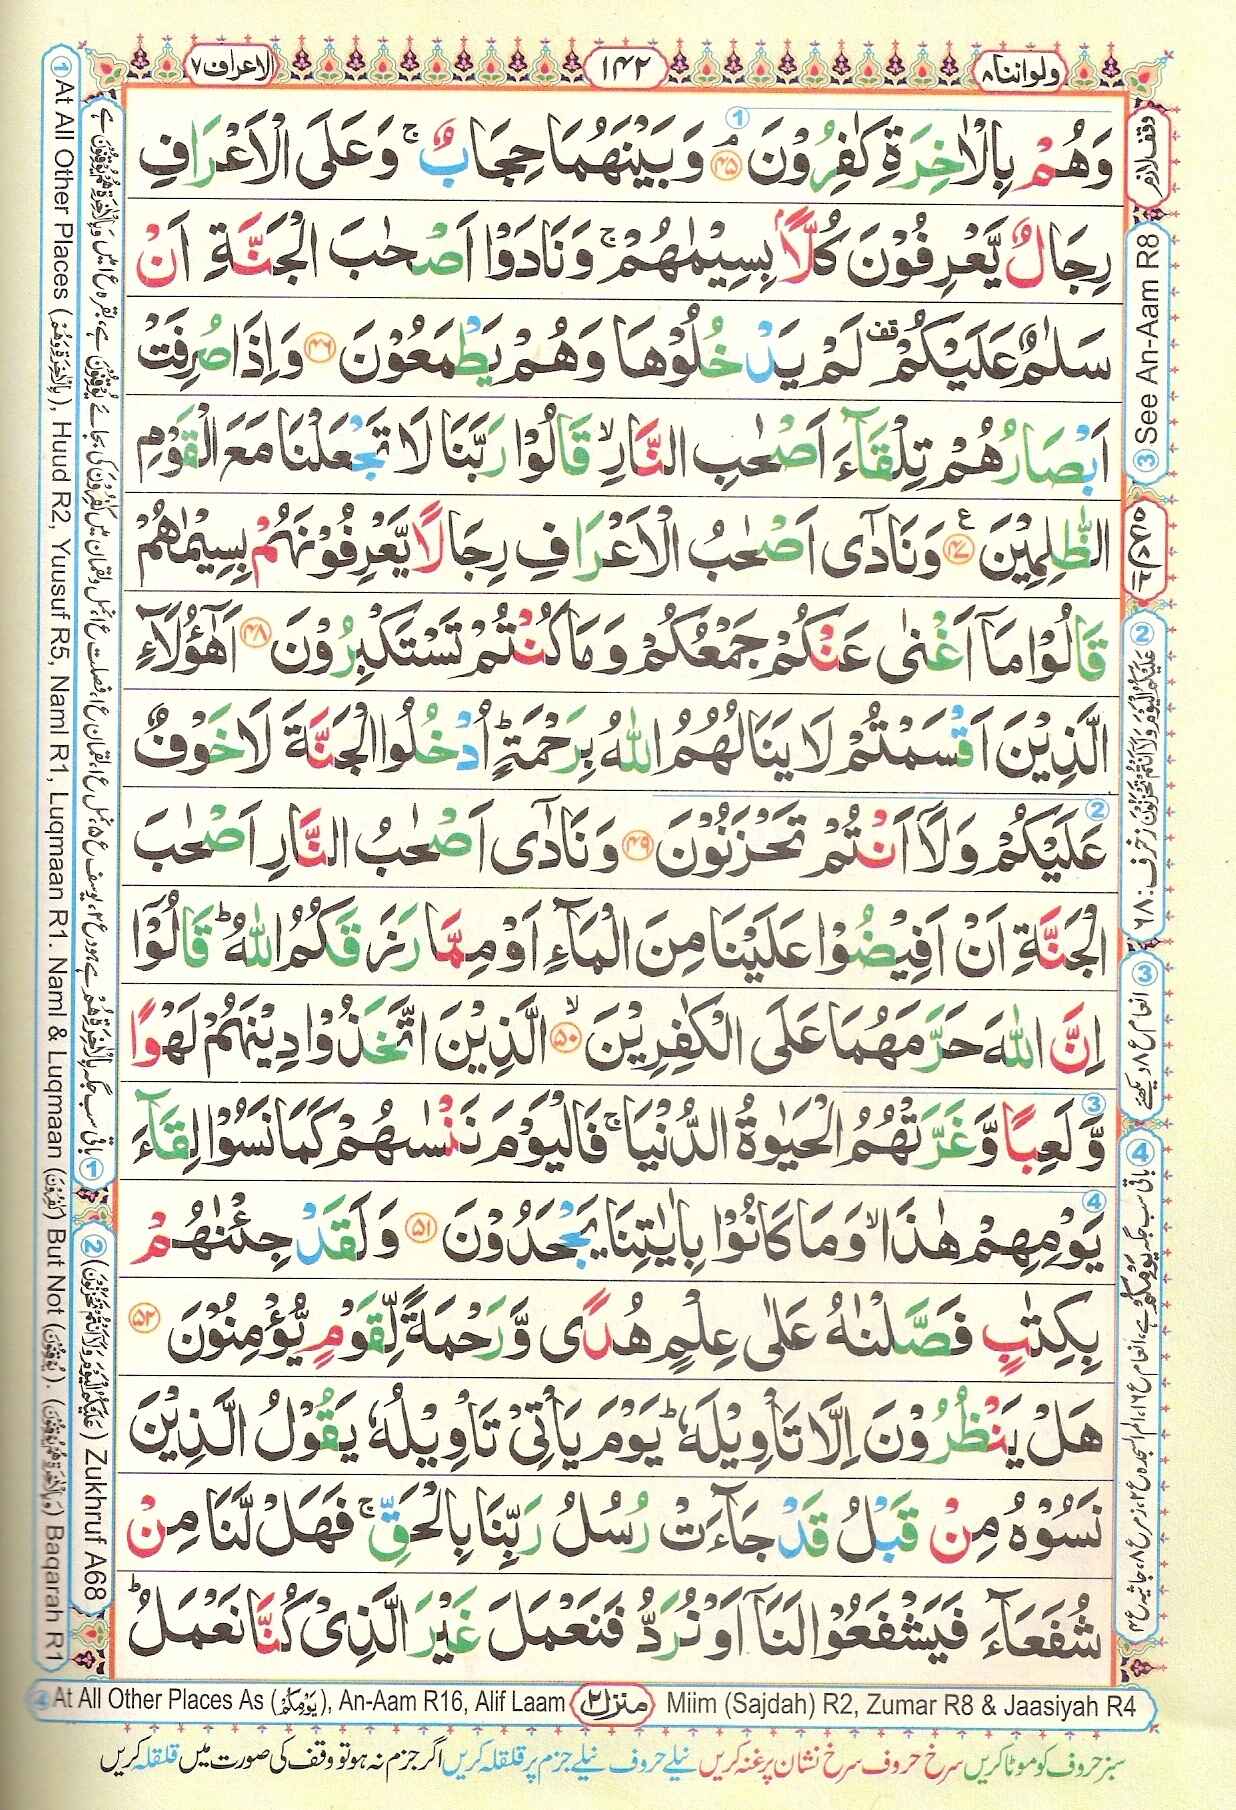 الاعراف ٧
١٤٢
ولواننا ٨
وَهُمْ بِالْاٰخِرَةِ كٰفِرُوْنَ ۘ ﴿۴۵﴾ وَبَيْنَهُمَا حِجَابٌ ۚ وَعَلَى الْاَعْرَافِ
رِجَالٌ يَّعْرِفُوْنَ كُلًّاۢ بِسِيْمٰىهُمْ ۚ وَنَادَوْا اَصْحٰبَ الْجَنَّةِ اَنْ
سَلٰمٌ عَلَيْكُمْ ۟ لَمْ يَدْخُلُوْهَا وَهُمْ يَطْمَعُوْنَ ﴿۴۶﴾ وَاِذَا صُرِفَتْ
اَبْصَارُهُمْ تِلْقَآءَ اَصْحٰبِ النَّارِ ۙ قَالُوْا رَبَّنَا لَا تَجْعَلْنَا مَعَ الْقَوْمِ
الظّٰلِمِيْنَ ﴿۴۷﴾ ع وَنَادٰۤى اَصْحٰبُ الْاَعْرَافِ رِجَالًا يَّعْرِفُوْنَهُمْ بِسِيْمٰىهُمْ
قَالُوْا مَاۤ اَغْنٰى عَنْكُمْ جَمْعُكُمْ وَمَا كُنْتُمْ تَسْتَكْبِرُوْنَ ﴿۴۸﴾ اَهٰۤؤُلَآءِ
الَّذِيْنَ اَقْسَمْتُمْ لَا يَنَالُهُمُ اللّٰهُ بِرَحْمَةٍ ؕ اُدْخُلُوا الْجَنَّةَ لَا خَوْفٌ
عَلَيْكُمْ وَلَاۤ اَنْتُمْ تَحْزَنُوْنَ ﴿۴۹﴾ وَنَادٰۤى اَصْحٰبُ النَّارِ اَصْحٰبَ
الْجَنَّةِ اَنْ اَفِيْضُوْا عَلَيْنَا مِنَ الْمَآءِ اَوْ مِمَّا رَزَقَكُمُ اللّٰهُ ؕ قَالُوْۤا
اِنَّ اللّٰهَ حَرَّمَهُمَا عَلَى الْكٰفِرِيْنَ ۙ ﴿۵۰﴾ الَّذِيْنَ اتَّخَذُوْا دِيْنَهُمْ لَهْوًا
وَّلَعِبًا وَّغَرَّتْهُمُ الْحَيٰوةُ الدُّنْيَا ۚ فَالْيَوْمَ نَنْسٰىهُمْ كَمَا نَسُوْا لِقَآءَ
يَوْمِهِمْ هٰذَا ۙ وَمَا كَانُوْا بِاٰيٰتِنَا يَجْحَدُوْنَ ﴿۵۱﴾ وَلَقَدْ جِئْنٰهُمْ
بِكِتٰبٍ فَصَّلْنٰهُ عَلٰى عِلْمٍ هُدًى وَّرَحْمَةً لِّقَوْمٍ يُّؤْمِنُوْنَ ﴿۵۲﴾
هَلْ يَنْظُرُوْنَ اِلَّا تَاْوِيْلَهٗ ؕ يَوْمَ يَاْتِيْ تَاْوِيْلُهٗ يَقُوْلُ الَّذِيْنَ
نَسُوْهُ مِنْ قَبْلُ قَدْ جَآءَتْ رُسُلُ رَبِّنَا بِالْحَقِّ ۚ فَهَلْ لَّنَا مِنْ
شُفَعَآءَ فَيَشْفَعُوْا لَنَاۤ اَوْ نُرَدُّ فَنَعْمَلَ غَيْرَ الَّذِيْ كُنَّا نَعْمَلُ ؕ
وقف لازم
③ See An-Aam R8
② عَلَيْكُمُ الْيَوْمَ وَلَاۤ اَنْتُمْ تَحْزَنُوْنَ زخرف : ٦٨
③ انعام ع ٨ دیکھئے
④ باقی سب جگہ يَوْمِكُمْ ہے، انعام ع ١٦، الم السجدہ ع ٢، زمر ع ٨، جاثیہ ع ٤
① At All Other Places (بِالْاٰخِرَةِ هُمْ), Huud R2, Yuusuf R5, Naml R1, Luqmaan R1. Naml & Luqmaan (كٰفِرُوْنَ) But Not (يُوْقِنُوْنَ). (وَبِالْاٰخِرَةِ هُمْ يُوْقِنُوْنَ) Baqarah R1
② (عَلَيْكُمُ الْيَوْمَ وَلَاۤ اَنْتُمْ تَحْزَنُوْنَ) Zukhruf A68
④ At All Other Places As (يَوْمِكُمْ), An-Aam R16, Alif Laam منزل ٢ Miim (Sajdah) R2, Zumar R8 & Jaasiyah R4
سبز حروف کو موٹا کریں سرخ حروف سرخ نشان پر غنہ کریں نیلے حروف نیلے جزم پر قلقلہ کریں اگر جزم نہ ہو تو وقف کی صورت میں قلقلہ کریں